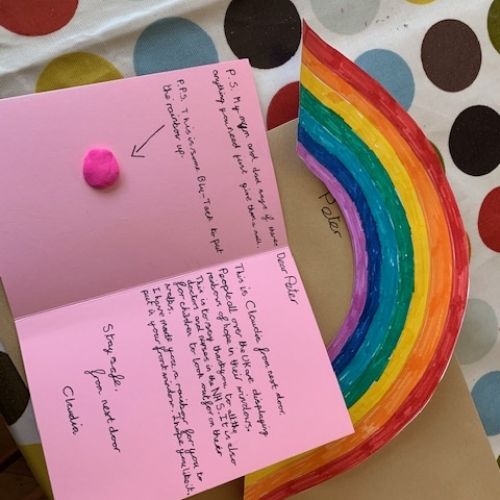 P.S. My mum and dad says if theres
anything you need just give them a call.
P.P.S. This is some Blu-Tack to put
the rainbow up.
Dear Peter
This is Claudia from next door
People all over the UK are displaying
rainbows of hope in their windows.
This is to say thankyou to all the
doctors and nurses in the NHS. It is also
for children to look out for on their
walks.
I have made you a rainbow for you to
put in your front window. I hope you like it.
Stay safe,
from next door
Claudia
Peter